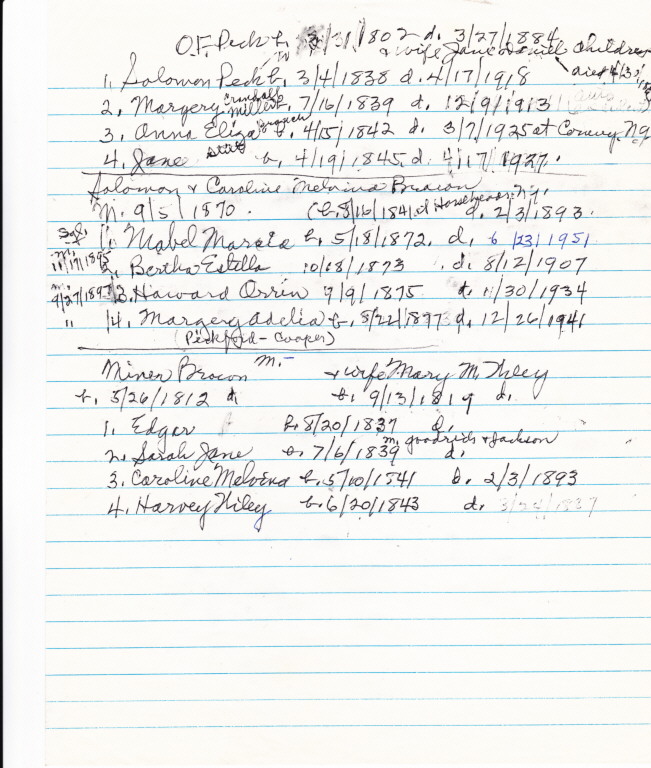 O.F. Peck b. 3/31/1802 d. 3/27/1884
& wife Jane Children
1. Solomon Peck b. 3/4/1838 d. 4/17/1918
died
2. Margery Crandall Miller b. 7/16/1839 d. 12/9/1913
3. Anna Eliza Branch b. 4/5/1842 d. 3/7/1925 at
4. Jane b. 4/19/1845. d. 4/17/1927.
Solomon & Caroline Melvina Bracon
m. 9/5/1870. (b. 5/10/1841 at Horseheads N.Y. d. 2/3/1893.
1. Mabel b. 5/18/1872. d. 6/23/1951
m. 11/17/1895
2. Bertha Estella 10/18/1873 d. 8/12/1907
m. 9/27/1897
3. Howard Orrin 9/9/1875 d. 11/30/1934
" 4. Margery Adelia b. 8/22/1877 d. 12/26/1941
(Peckford-Cooper)
Miner Bracon m.- & wife Mary M. Wiley
b. 5/26/1812 d. b. 9/13/1819 d.
1. Edgar b. 8/20/1837 d.
m. Goodrich & Jackson
2. Sarah Jane b. 7/6/1839 d.
3. Caroline Melvina b. 5/10/1841 d. 2/3/1893
4. Harvey Wiley b. 6/20/1843 d.